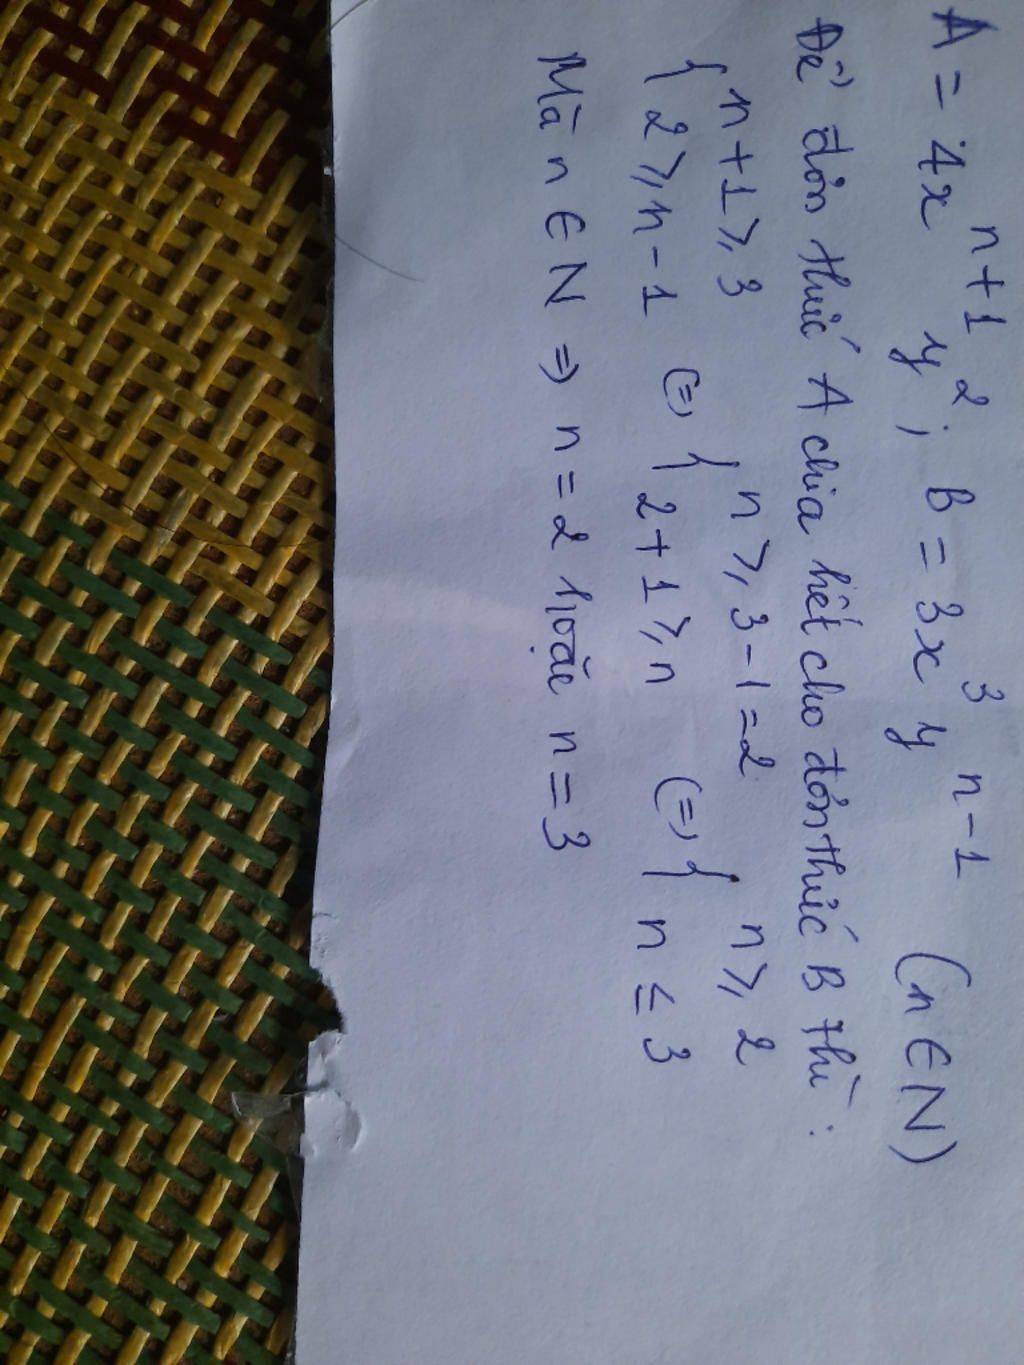 A = 4x^{n+1} y^2 ; B = 3x^3 y^{n-1} (n ∈ N)
Để đơn thức A chia hết cho đơn thức B thì :
{ n + 1 ⩾ 3 { n ⩾ 3 - 1 = 2 { n ⩾ 2
2 ⩾ n - 1 (=) 2 + 1 ⩾ n (=) n ≤ 3
Mà n ∈ N => n = 2 hoặc n = 3